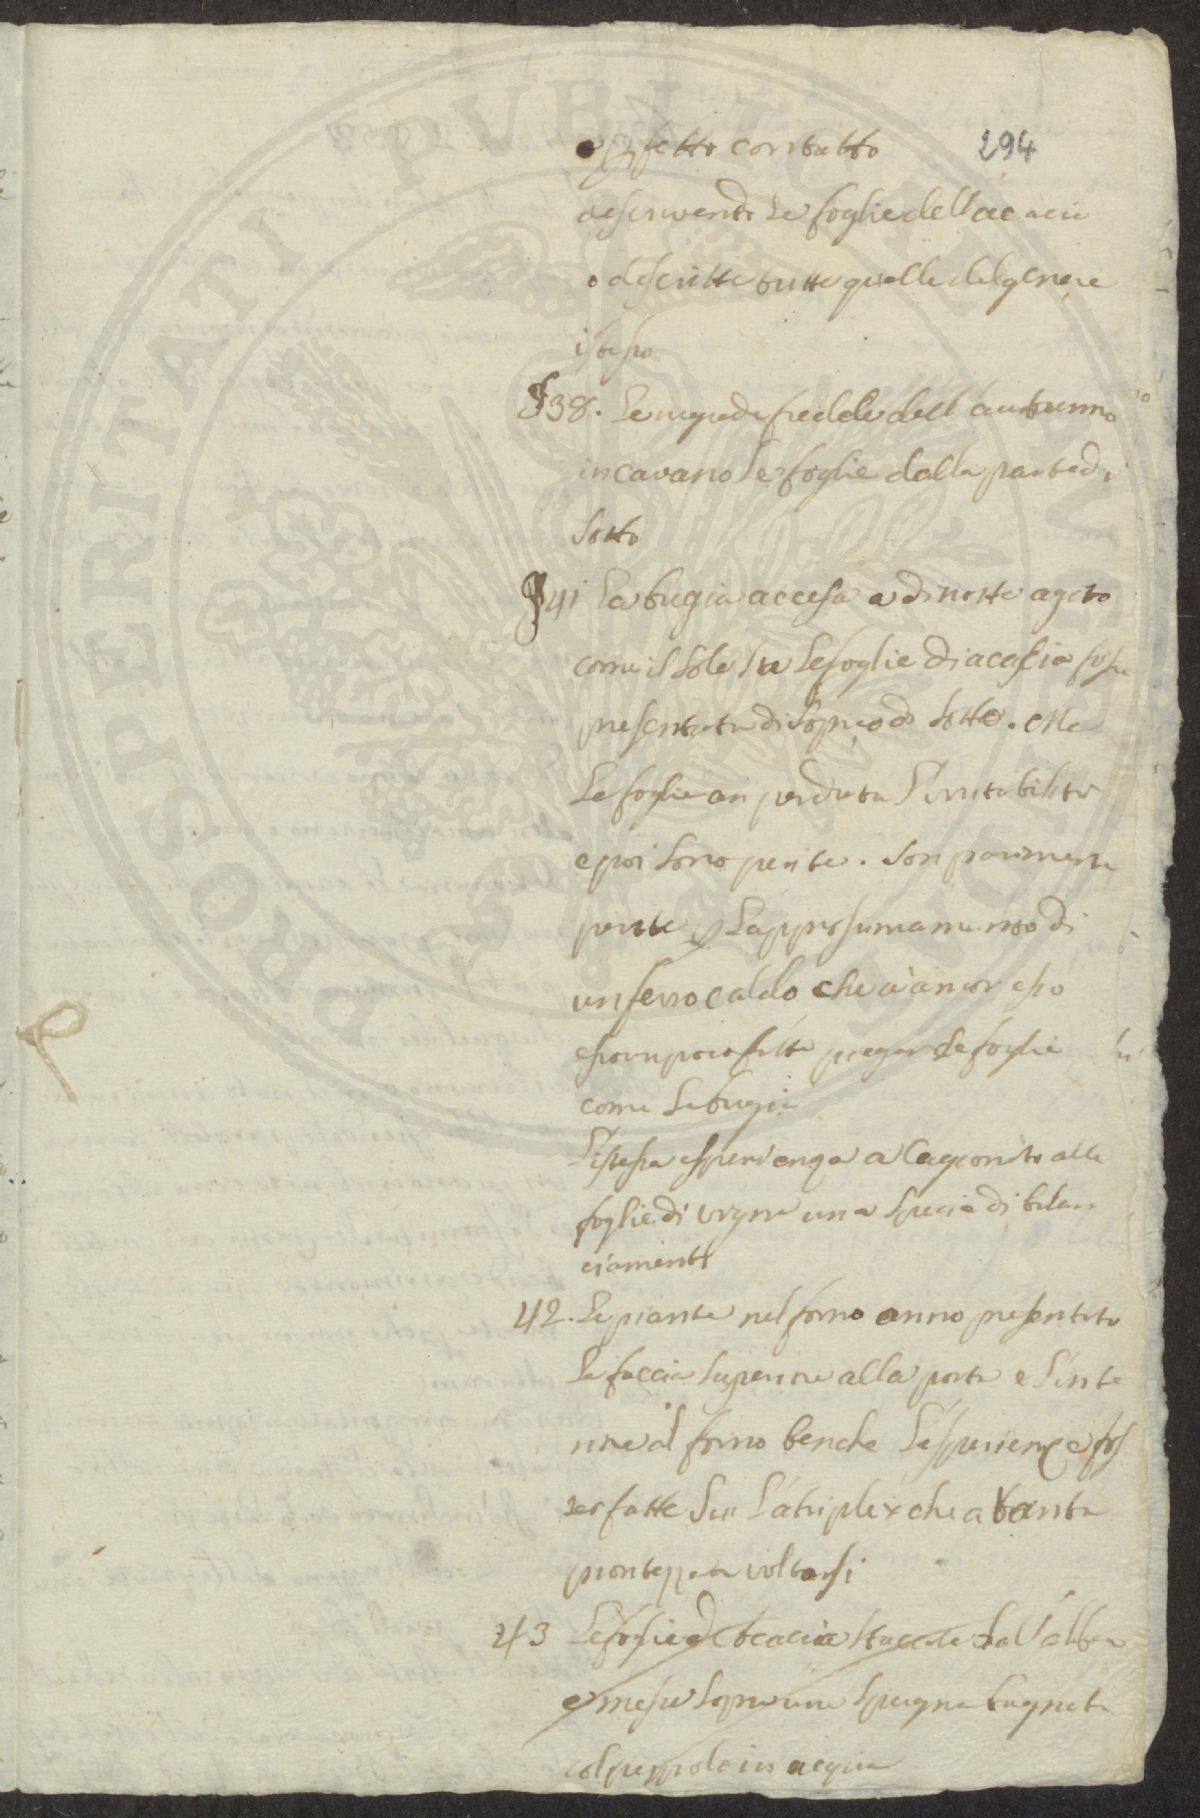 perfetto contatto 294
descrivendo le foglie dell'acacia
o descritte tutte quelle del genere
istesso
§38. Le rugiade fredde dell'autunno
incavano le foglie dalla parte di
sotto
§41 La bugia accesa a di notte agito
come il sole su le foglie di acacia fosse
presentata di sopra o di sotto. Ma
le foglie an perduta l'irritabilità
e poi sono perite. Son parimente
perite p l'approssimamento di
un ferro caldo che à ancor esso
un poco fatte piegar le foglie
come la bugia
L'istessa esperienza a cagionato alle
foglie di vigna una specie di bilan
ciamenti
42. Le piante nel forno anno presentato
la faccia superiore alla porta e l'infe
riore al forno benche l'esperienze fos
ser fatte su l'atriplex che a tanta
prontezza a voltarsi
43 Le foglie d'acacia staccate dall'albero
e messe sopra una spugna bagnata
col pezzolo in acqua
PROSPERITATI PVBLICAE